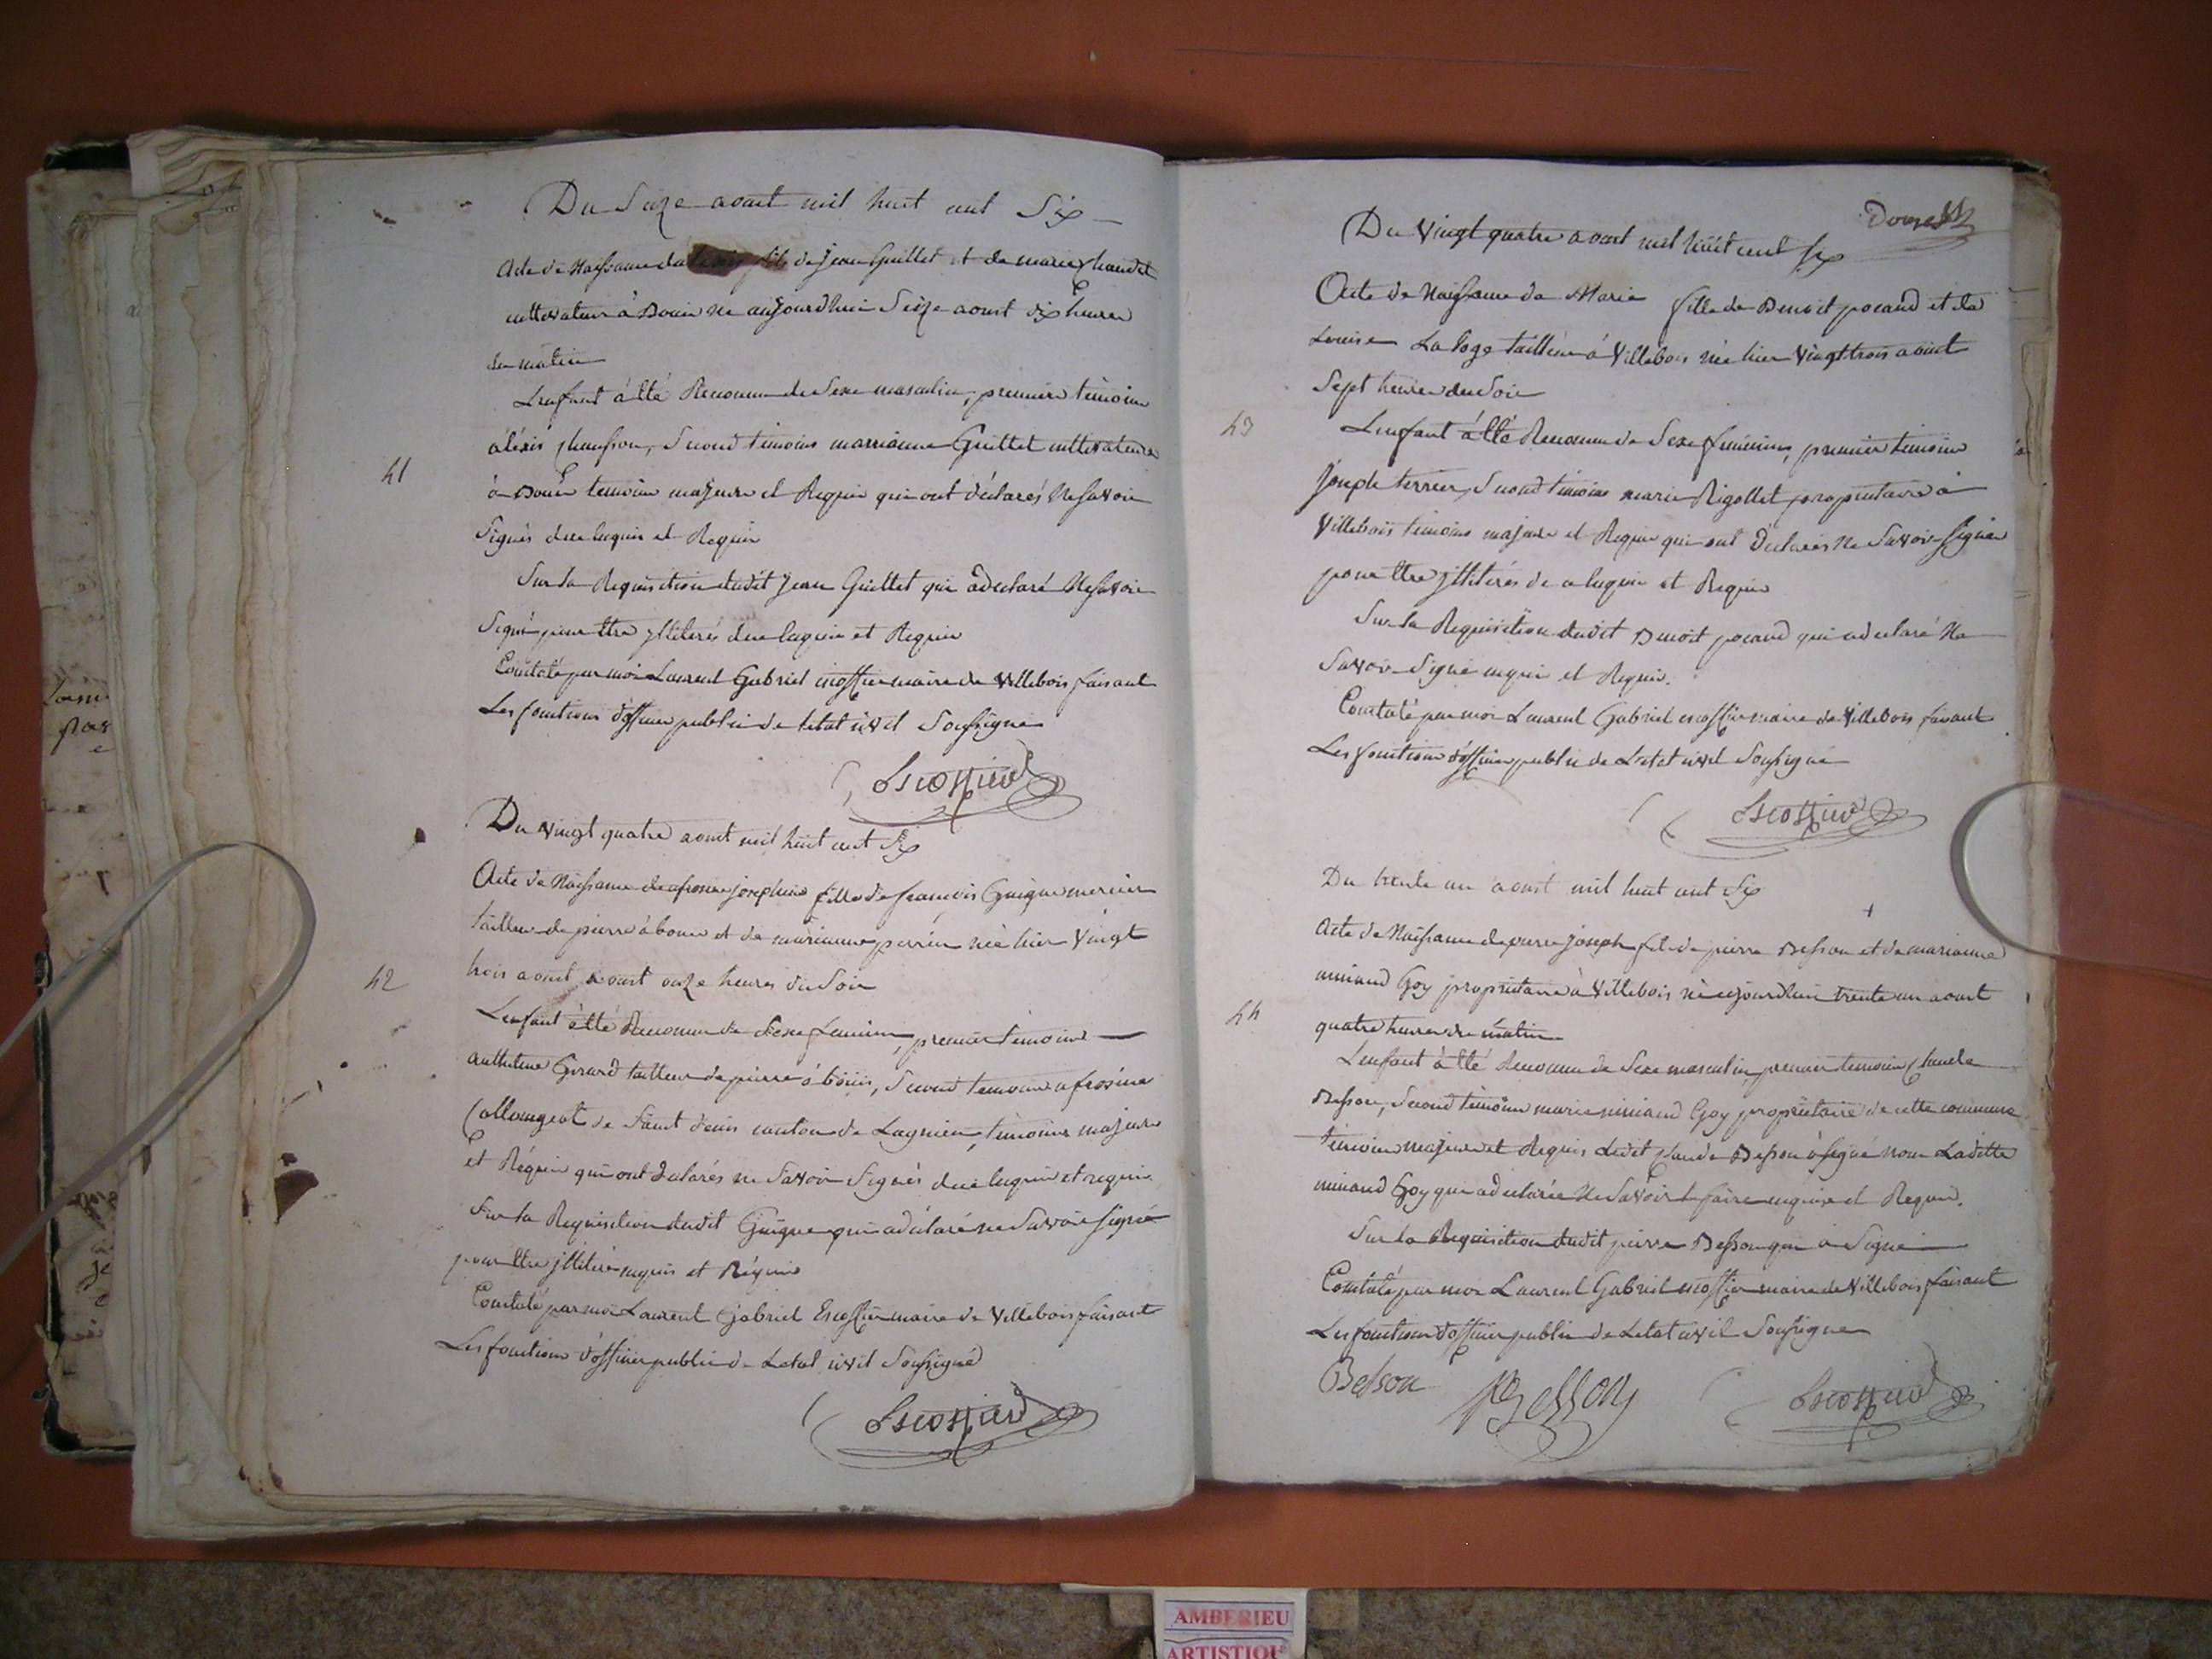 Du Seize aoust mil huit cent Six
Acte de Naissance de fils de jean Guillet et de marie Chaudet
cultivateur à Bouis né aujourdhui Seize aoust dix heures
du matin
Lenfant à été Reconnu de Sexe masculin, premier témoin
aléxis Chausson, Second témoins marrianne Guillet cultivateurs
41
à Bouis temoins majeurs et Requis qui ont déclarés Ne Savoir
Signés de ce enquis et Requis
Sur la Requisition dudit jean Guillet qui à déclaré Ne Savoir
Signé pour être illiterés de ce enquis et Requis
Constaté par moi Laurent Gabriel escoffier maire de Villebois faisant
Les fonctions d'officier public de letat civil Soussigné
Escoffier
Du vingt quatre aoust mil huit cent Six
Acte de Naissance de afrosine josephine fille de francois Guigue mercier
tailleur de pierre à bouis et de marianne perrin née hier vingt
trois aoust aoust onze heures du Soir
42
Lenfant à été Reconnu de Sexe feminin, premier témoins
anthelme Girard tailleur de pierre à bouis, Second temoins afrosine
Collomgeat de Saint denis canton de Lagnieu, témoins majeurs
et Réquis qui ont déclarés ne Savoir Signés de ce enquis et requis
Sur la Requisition dudit Guigue qui a déclaré ne Savoir Signé
pour être illitéré enquis et Réquis
Constaté par moi Laurent Gabriel Escoffier maire de Villebois faisant
Les fonctions d'officier public de Letat civil Soussigné
Escoffier
Du Vingt quatre aoust mil huit cent Six
Acte de Naissance de Marie fille de Benoit pocand et de
Louise La loge tailleur à Villebois née hier Vingt trois aoust
Sept heures du Soir
43
Lenfant à été Reconnu de Sexe feminins, premier témoins
joseph terrier, Second témoins marie Rigollet propriétaire à
Villebois témoins majeurs et Requis qui ont déclarés Ne Savoir Signer
pour être illitérés de ce enquis et Requis
Sur la Requisition dudit Benoit pocand qui a declaré Ne
Savoir Signé enquis et Requis.
Constaté par moi Laurent Gabriel escoffier maire de Villebois faisant
Les fonctions d'officier public de Letat civil Soussigné
Escoffier
Du trente un aoust mil huit cent Six
Acte de Naissance de pierre joseph fils de pierre Besson et de marianne
miniand Goy propriétaire à Villebois né aujourdhui trente un aoust
44
quatre heures du matin
Lenfant à été Reconnu de Sexe masculin, premier temoins Claude
Besson, Second témoins marie miniand Goy propriétaire de cette commune
témoins majeurs et Requis Ledit Claude Besson à Signé non Ladite
miniand Goy qui a declarée Ne Savoir le faire enquise et Requise.
Sur la Requisition dudit pierre Besson qui à Signé
Constaté par moi Laurent Gabriel escoffier maire de Villebois faisant
Les fonctions d'officier public de Letat civil Soussigné
Besson PBesson Escoffier
AMBERIEU
ARTISTIQU